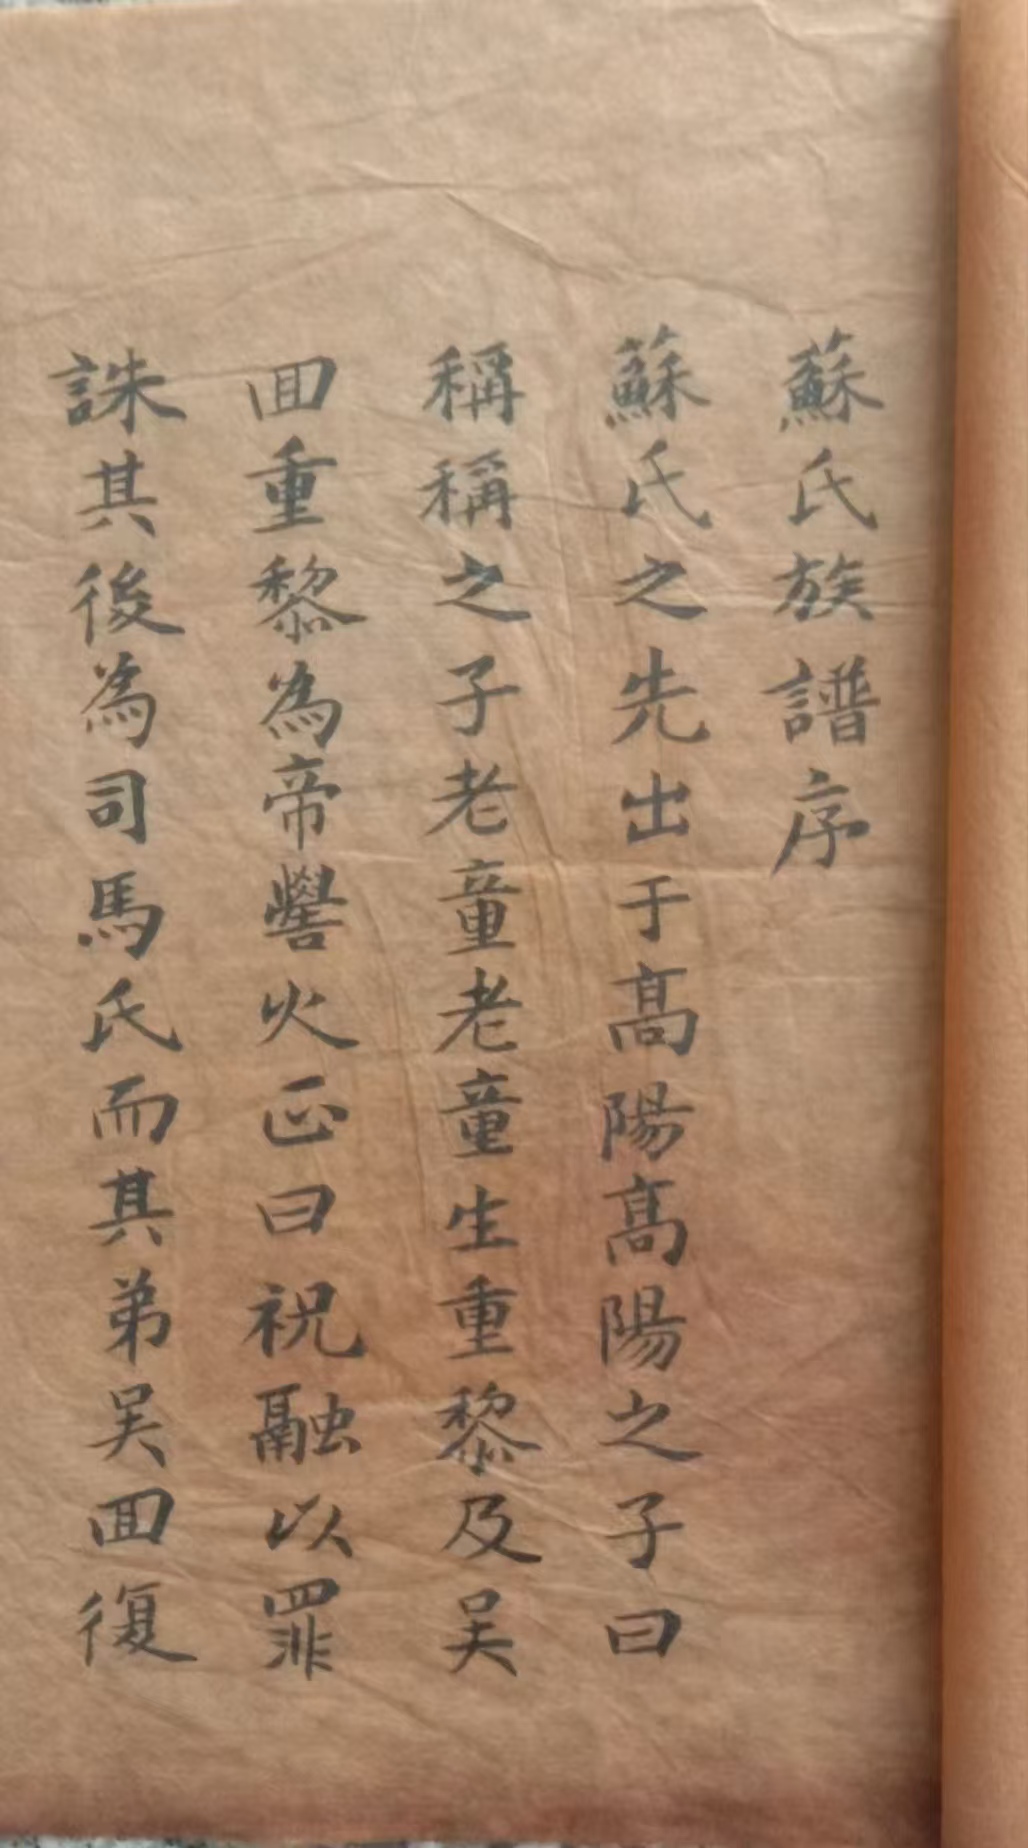 蘇氏族譜序
蘇氏之先出于高陽高陽之子曰
稱稱之子老童老童生重黎及吴
囬重黎為帝嚳火正曰祝融以罪
誅其後為司馬氏而其弟吴囬復